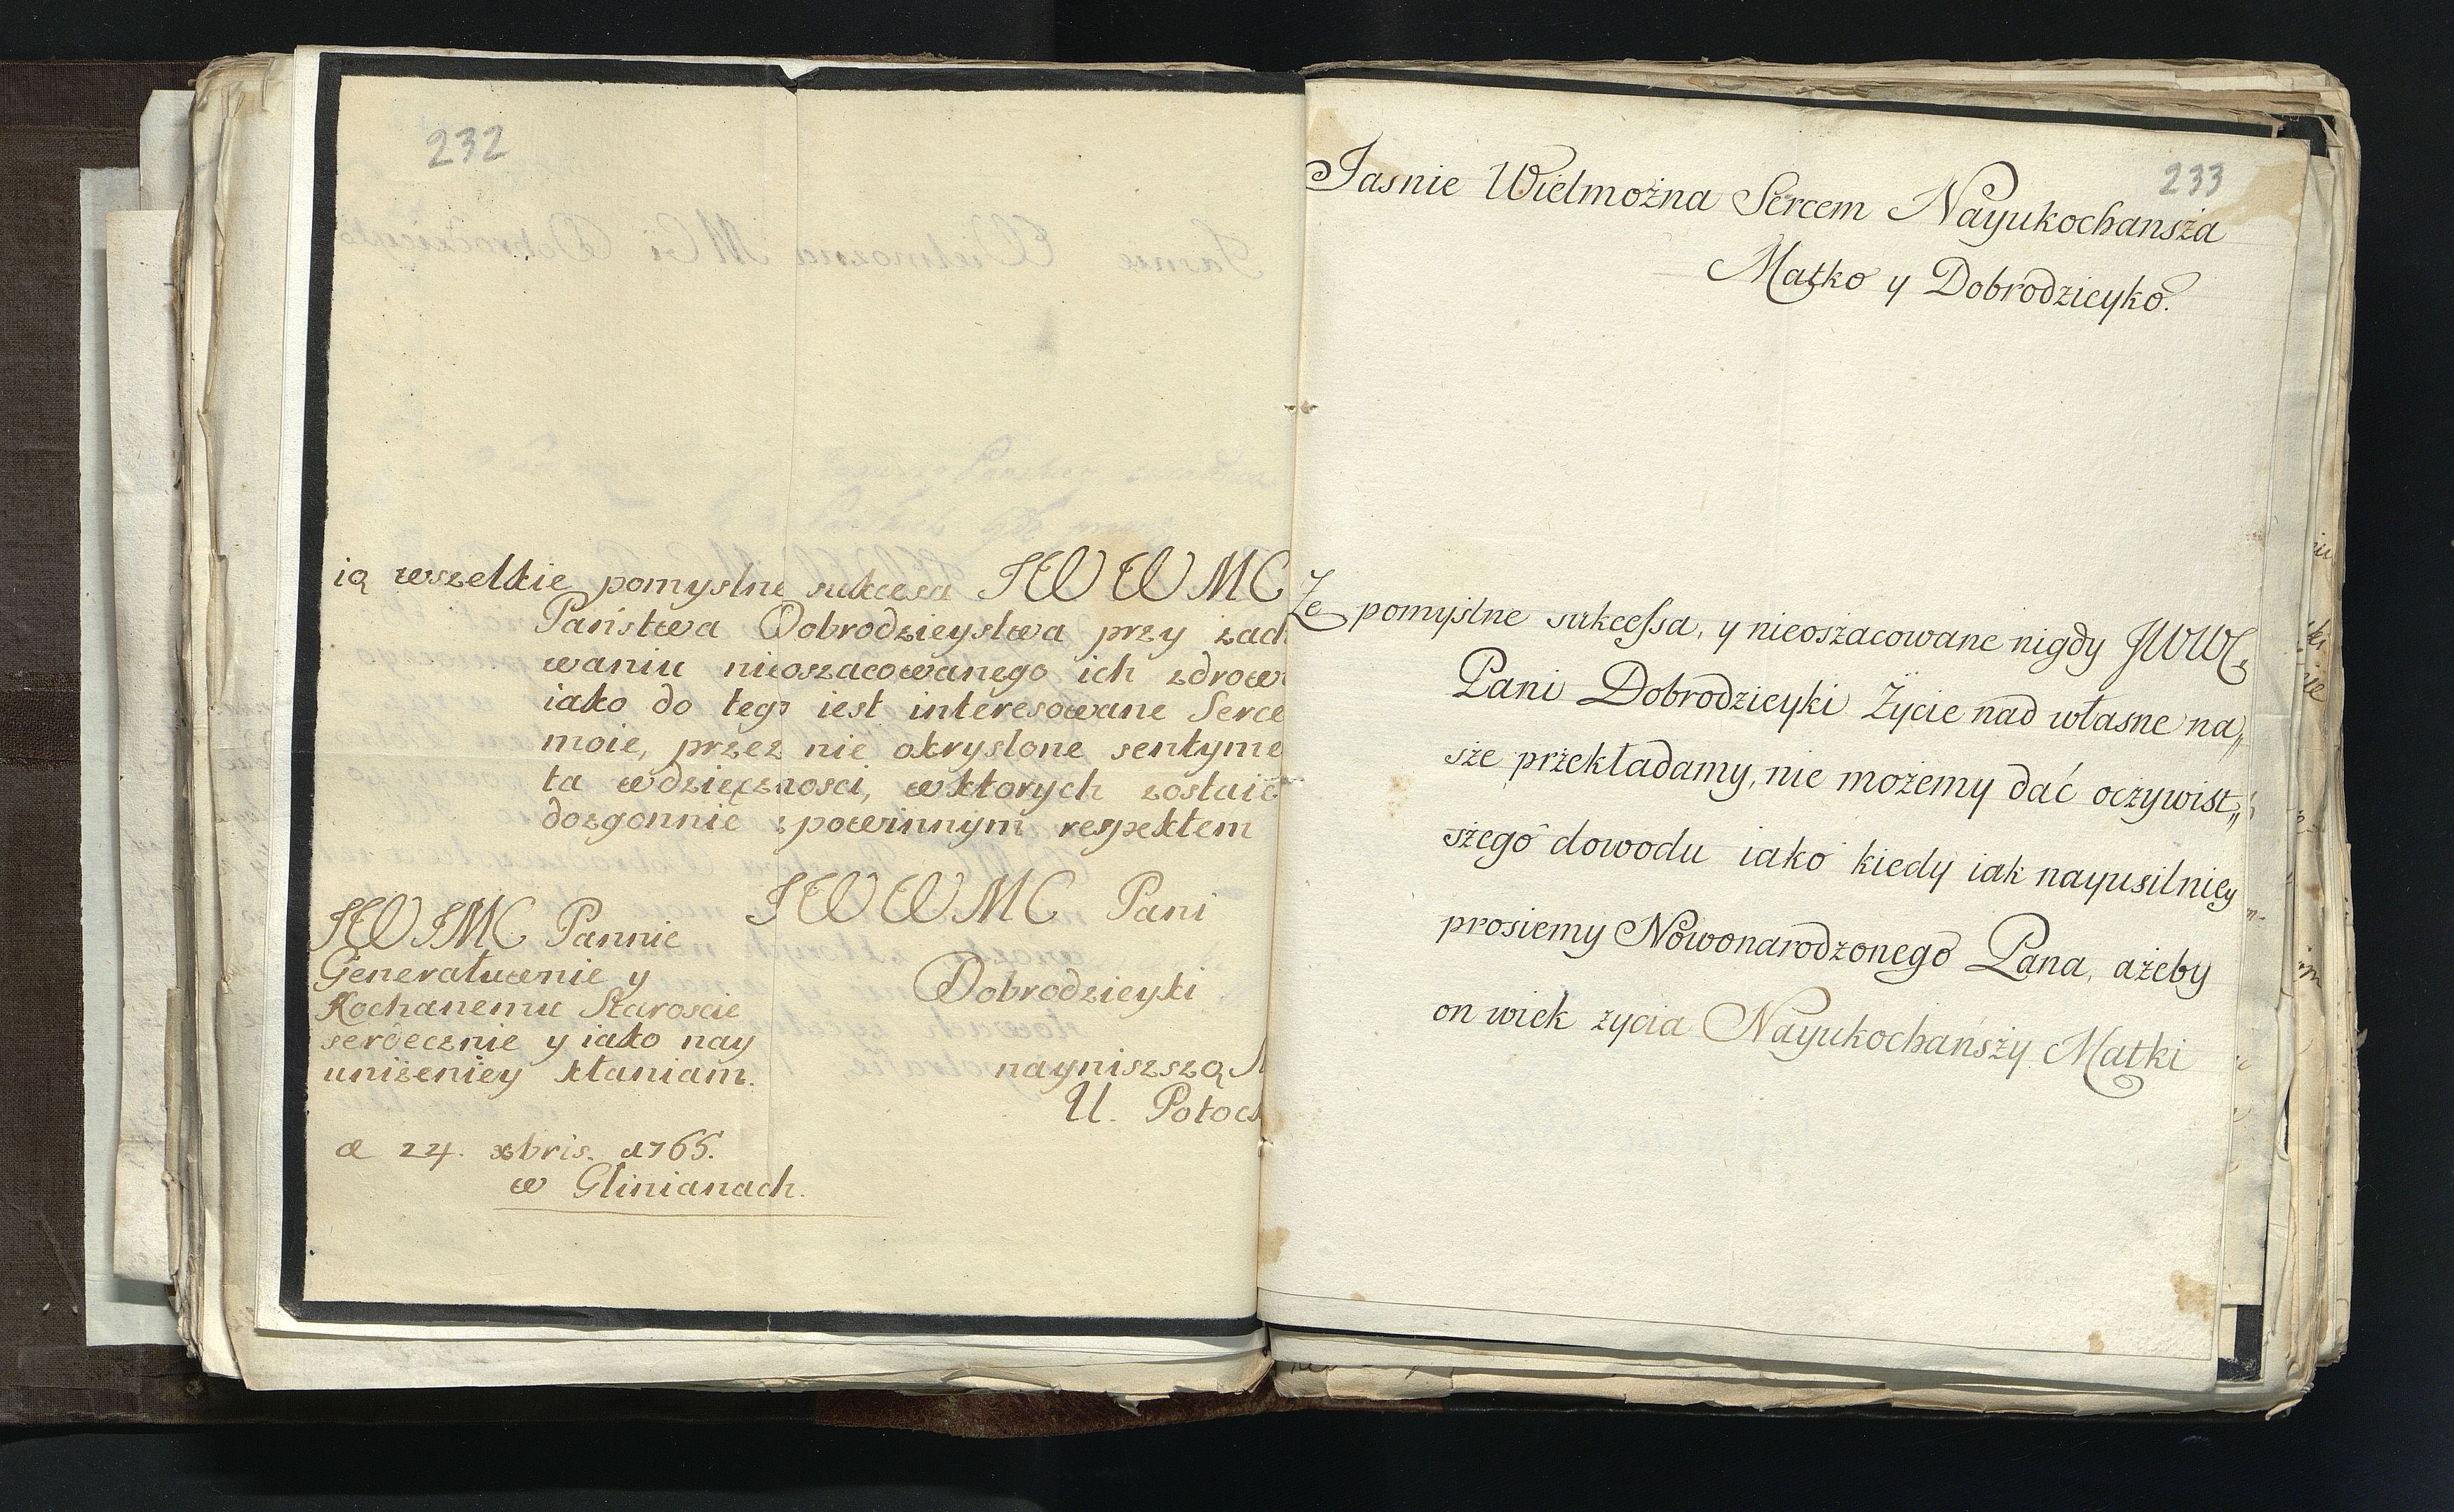 232
ią wszelkie pomyslne sukcesa JWWMC
Państwa Dobrodzieystwa przy zach
waniu nieoszacowanego ich zdrow
iako do tego iest interesowane Serce
moie, przez nie okryslone sentyme
ta wdzięcznosci, wktorych zostaię
dozgonnie z powinnym respektem
JWWMC Pani
Dobrodzieyki
nayniszszą
U. Potoc
JWJMC Pannie
Generałuwnie y
Kochanemu Staroscie
serdecznie y iako nay
uniżeniey kłaniam.
d 24. xbris. 1765.
w Glinianach.
233
Jasnie Wielmożna Sercem Nayukochansża
Matko y Dobrodzieyko.
Że pomyślne sukcessa, y nieoszacowane nigdy JWWC,
Pani Dobrodzieyki Życie nad własne na„
sże przekładamy, nie możemy dać oczywist„
szego dowodu iako kiedy iak nayusilniey
prosiemy Nowonarodzonego Pana, ażeby
on wiek zycia Nayukochańszy Matki